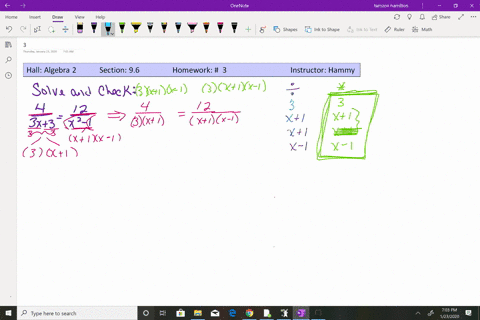 OneNote
harrison hamilton
File Home Insert Draw View Help
Shapes Ink to Shape Ink to Text Ruler Math
3
Hall: Algebra 2 Section: 9.6 Homework: # 3 Instructor: Hammy
Solve and Check: (3)(x+1)(x-1) (3)(x+1)(x-1)
4/(3x+3) = 12/(x²-1) ⇒ 4/((3)(x+1)) = 12/((x+1)(x-1))
3 3 (x+1)(x-1)
(3)(x+1)
÷ *
3 3
x+1 x+1
x+1
x-1 x-1
Type here to search
7:03 PM
1/23/2020